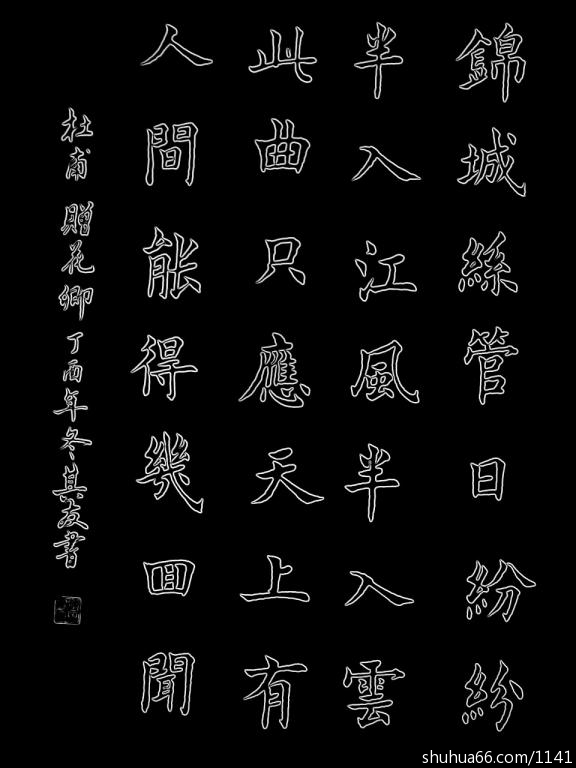 錦城絲管日紛紛
半入江風半入雲
此曲只應天上有
人間能得幾回聞
杜甫贈花卿丁酉年冬其友書
shuhua66.com/1141